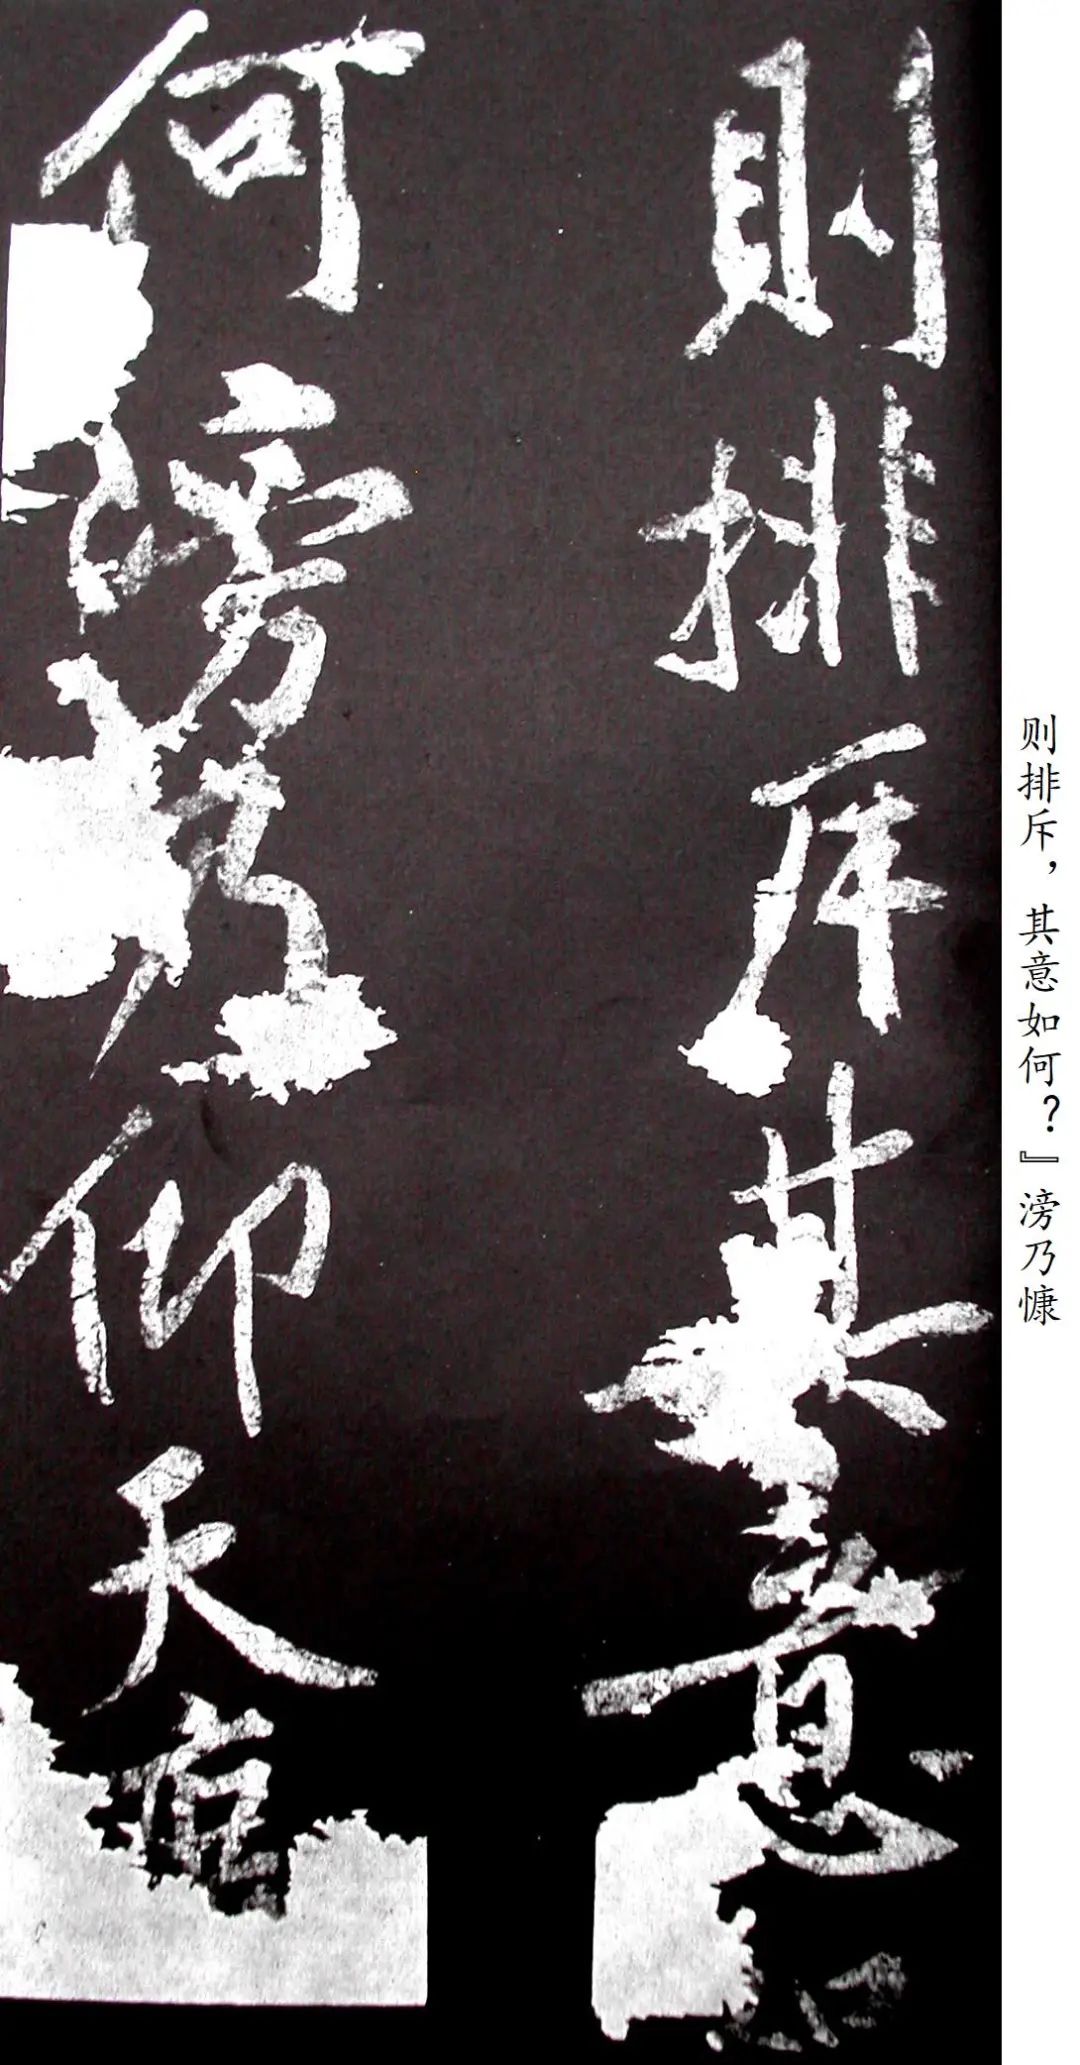 则排斥，其意如何？』滂乃慷
則排斥其意
何滂乃仰天